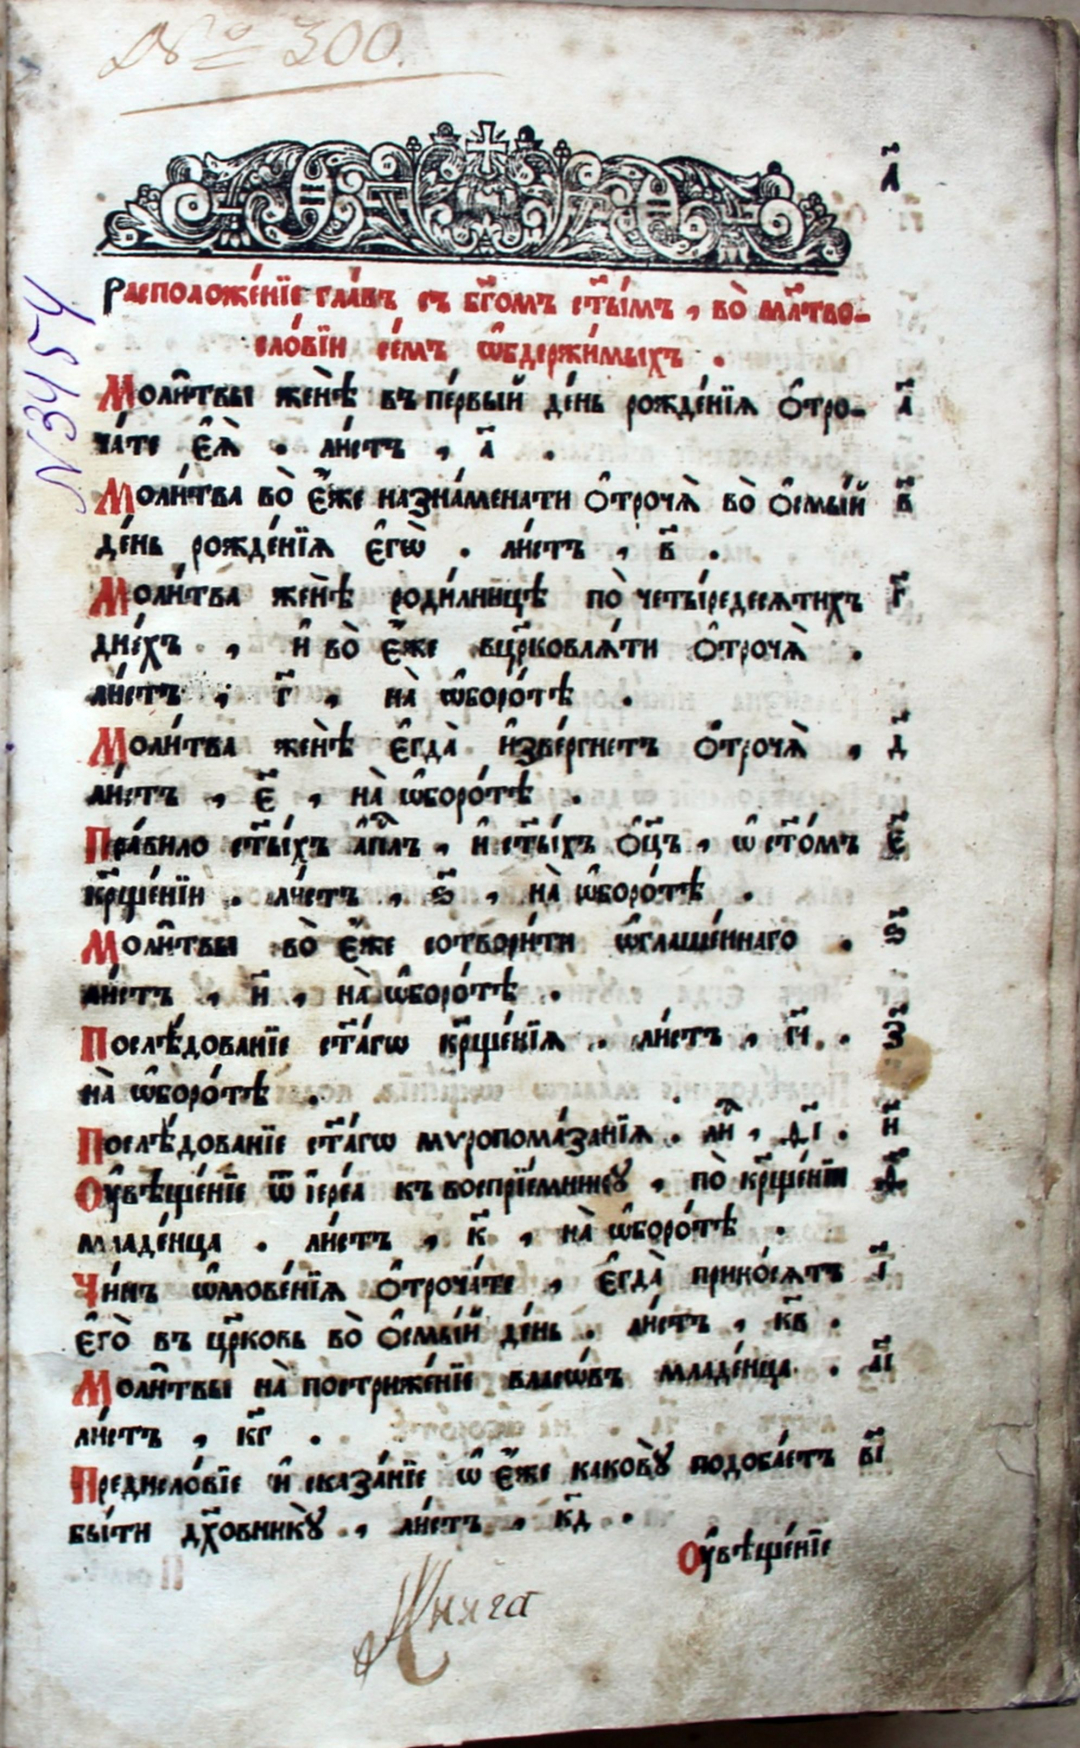 № 300.
а҃
Расположе́нїе гла́въ съ бг҃омъ ст҃ы́мъ , во̀ мл҃тво-
сло́вїи се́мъ ѡ҆бдержи́мыхъ .
Моли̑твы же́нѣ въ пе́рвый де́нь рожде́нїѧ ѻ҆тро- а҃
ча́те є҆ѧ̀ . ли́стъ , а҃ .
Моли́тва во̀ є҆́же назна́менати ѻ҆троча̀ во̀ ѻ҆смы́й в҃
де́нь рожде́нїѧ є҆гѡ̀ . ли́стъ , в҃ .
Моли́тва же́нѣ роди́лницѣ по̀ четы́редесѧтихъ г҃
дне́хъ , и҆ во̀ є҆́же вцр҃ковлѧ́ти ѻ҆троча̀ .
ли́стъ , г҃ , на̀ ѡ҆боро́тѣ .
Моли́тва же́нѣ є҆гда̀ и҆зве́ргнетъ ѻ҆троча̀ , д҃
ли́стъ , є҃ , на̀ ѡ҆боро́тѣ .
Пра́вило ст҃ы́хъ а҆пⷭ҇лъ , и҆ ст҃ы́хъ ѻ҆ц҃ъ , ѡ ст҃о́мъ є҃
кр҃ще́нїи . ли́стъ , ѕ҃ , на̀ ѡ҆боро́тѣ .
Моли̑твы во̀ є҆́же сотвори́ти ѡ҆глаше́ннаго . ѕ҃
ли́стъ , и҃ , на̀ ѡ҆боро́тѣ .
Послѣ́дованїе ст҃а́гѡ кр҃ще́нїѧ . ли́стъ , г҃і . з҃
на̀ ѡ҆боро́тѣ .
Послѣ́дованїе ст҃а́гѡ мѵропома́занїѧ . лиⷭ҇ , д҃і . и҃
Оу҆вѣще́нїе ѿ і҆ере́а къ воспрїе́мникꙋ , по̀ кр҃ще́нїи ѳ҃
младе́нца . ли́стъ , к҃ , на̀ ѡ҆боро́тѣ .
Чи́нъ ѡ҆мове́нїѧ ѻ҆троча́те , є҆гда̀ прино́сѧтъ і҃
є҆го̀ въ цр҃ковь во̀ ѻ҆смы́й де́нь . ли́стъ , кв҃ .
Моли̑твы на̀ постриже́нїе власѡ́въ младе́нца . а҃і
ли́стъ , кг҃ .
Предисло́вїе и҆ сказа́нїе ѡ҆ є҆́же како́вꙋ подоба́етъ в҃і
бы́ти дх҃овникꙋ̀ . , ли́стъ , кд҃ .
Оу҆вѣще́нїе
Книга
N3457